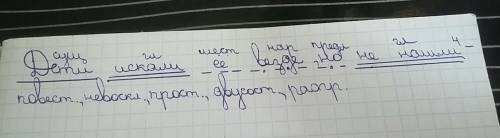 сущ гл мест нар предл гл ч
Дети искали ее везде, но не нашли –
повест., невоскл., прост., двусост., распр.